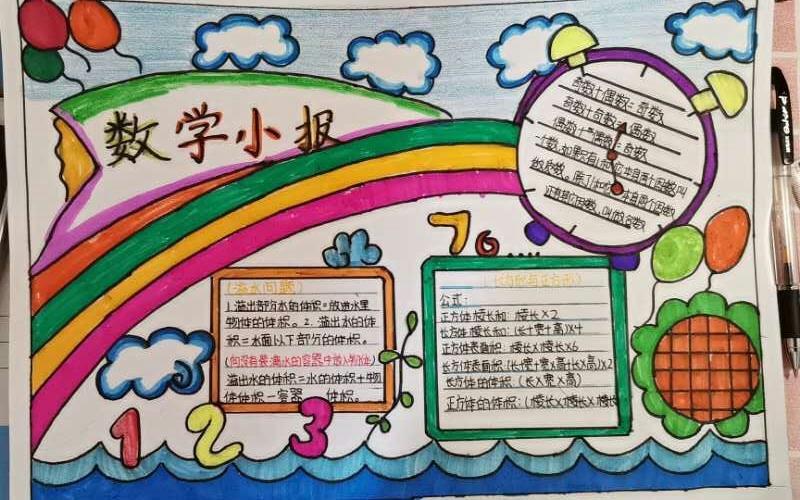 数学小报
奇数+偶数=奇数
奇数+奇数=偶数
偶数+偶数=奇数
个数,如果只有1和它本身两个因数,叫
做质数。除了1和它本身两个因数
还有其它因数,叫做合数
7 6
(溢水问题)
1.溢出部分水的体积=放进水里
物体的体积。2.溢出水的体
积=水面以下部分的体积。
(向没有装满水的容器中放入物体)
溢出水的体积=水的体积+物
体体积-容器 体积。
(长方形与正方形)
公式:
正方体棱长和:棱长×2
长方体棱长和:(长+宽+高)×4
正方体表面积:棱长×棱长×6
长方体表面积:(长×宽+宽×高+长×高)×2
长方体的体积:(长×宽×高)
正方体的体积:(棱长×棱长×棱长
1 2 3